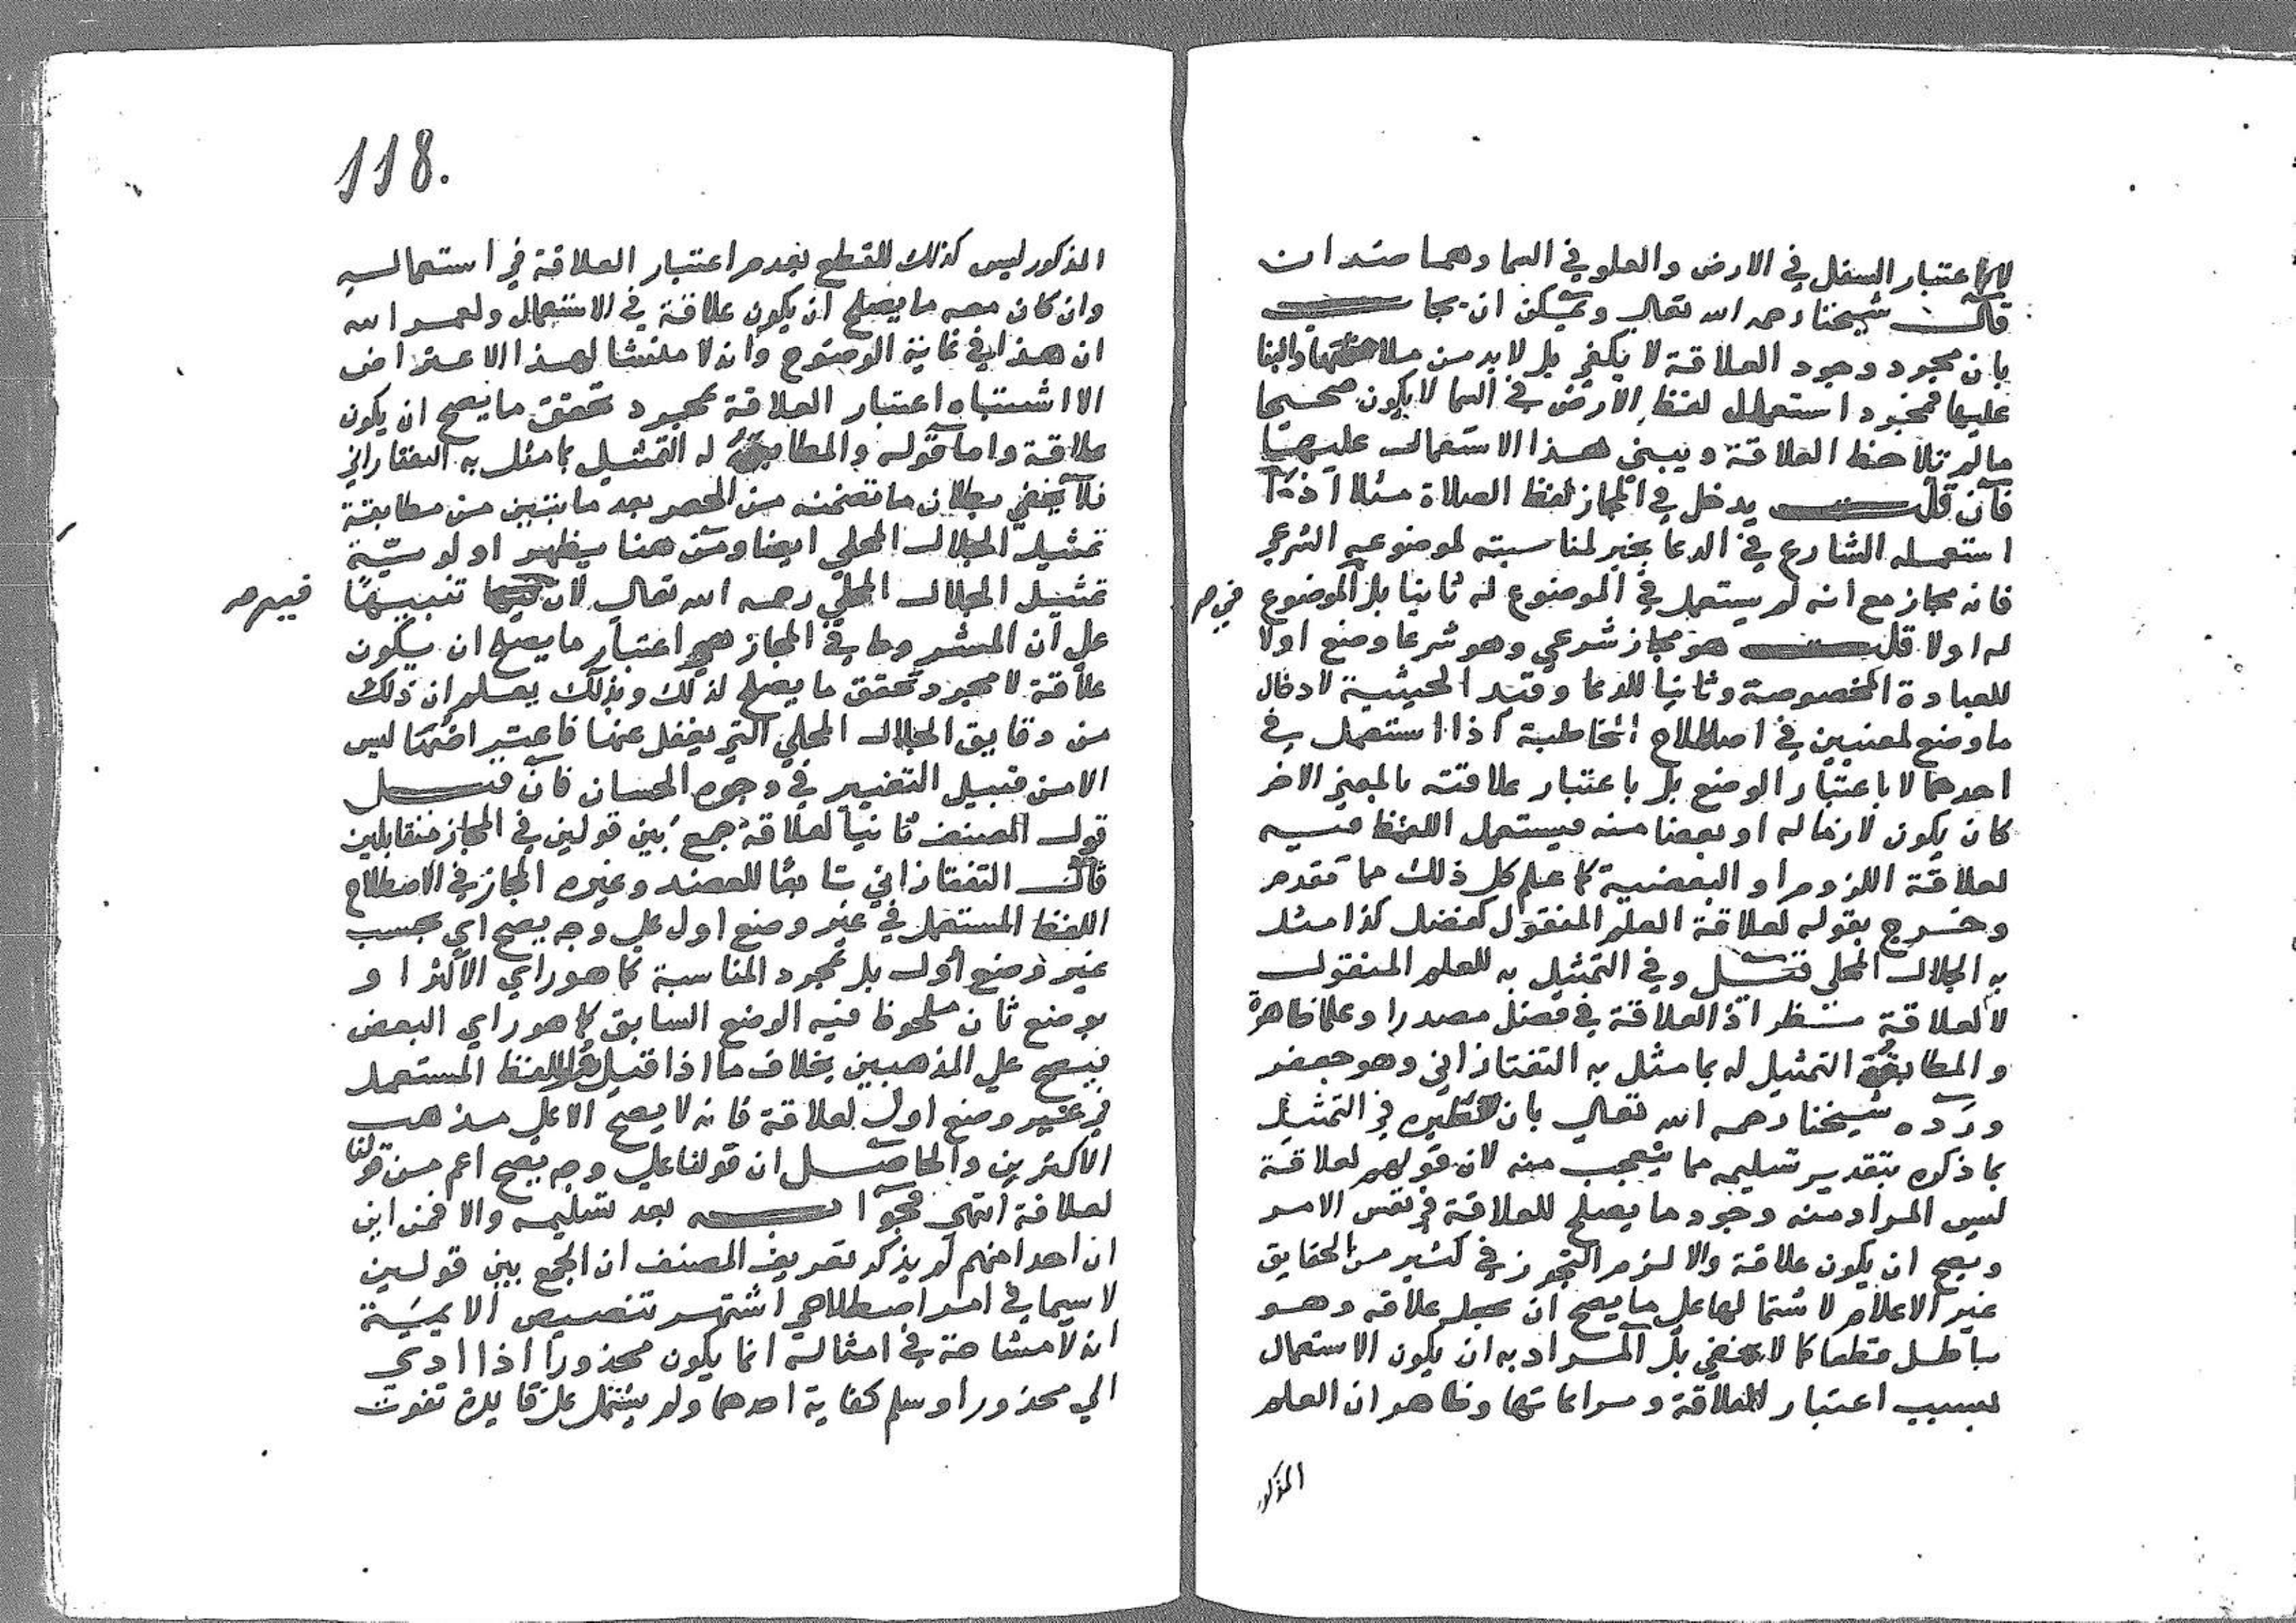 اعتبار السفل في الارض والعلو في السما وهما ضدان
قال شيخنا رحمه الله تعالى ويمكن ان يجاب
بان مجرد وجود العلاقة لا يكفي بل لا بد من ملاحظتها والبنا
عليها فمجرد استعمال لفظ الارض في السما لا يكون صحيحا
ما لم تلاحظ العلاقة ويبنى هذا الاستعمال عليها
فان قلت يدخل في المجاز لفظ الصلاة مثلا اذا
استعمله الشارع في الدعا بخير لمناسبته لموضوعه الشرعي
فانه مجاز مع انه لم يستعمل في الموضوع له ثانيا بل الموضوع
في صر
له اولا قلت هو مجاز شرعي وهو شرعا وضع اولا
للعبادة المخصوصة وثانيا للدعا وقيد الحيثية لادخال
ما وضع لمعنيين في اصطلاح المخاطبة اذا استعمل في
احدهما لا باعتبار الوضع بل باعتبار علاقته بالمعنى الاخر
كان يكون لازما له او بعضا منه فيستعمل اللفظ فيه
لعلاقة اللزوم او البعضية كما علم كل ذلك مما تقدم
وخرج بقوله لعلاقة العلم المنقول كفضل كذا مثل
به الجلال المحلي قيل وفي التمثيل به للعلم المنقول
لا لعلاقة نظر اذ العلاقة في فضل مصدرا وعلما ظاهرة
والمطابق التمثيل له بما مثل به التفتازاني وهو جعفر
ورده شيخنا رحمه الله تعالى بان تنظيره في التمثيل
بما ذكره بتقدير تسليمه مما يتعجب منه لان قولهم لعلاقة
ليس المراد منه وجود ما يصلح للعلاقة في نفس الامر
ويصح ان يكون علاقة والا لزم التجوز في كثير من الحقايق
غير الاعلام لاشتمالها على ما يصح ان يجعل علاقة وهو
باطل قطعا كما لا يخفى بل المراد به ان يكون الاستعمال
بسبب اعتبار العلاقة ومراعاتها وظاهر ان العلم
المذكور
118.
المذكور ليس كذلك للقطع بعدم اعتبار العلاقة في استعماله
وان كان معه ما يصلح ان يكون علاقة في الاستعمال ولعمر الله
ان هذا في غاية الوضوح وانه لا منشا لهذا الاعتراض
الا اشتباه اعتبار العلاقة بمجرد تحقق ما يصح ان يكون
علاقة واما قوله والمطابق له التمثيل بما مثل به التفتازاني
فلا يخفى بطلان ما تضمنه من الحصر بعد ما تبين من مطابقة
تمثيل الجلال المحلي ايضا ومن هنا يظهر اولوية
تمثيل الجلال المحلي رحمه الله تعالى لان فيه تنبيها
فيه صر
على ان المشروط في المجاز هي اعتبار ما يصلح ان يكون
علاقة لا مجرد تحقق ما يصلح لذلك وبذلك يعلم ان ذلك
من دقايق الجلال المحلي التي يغفل عنها فاعتراضها ليس
الا من قبيل التغبير في وجوه الحسان فان قيل
قول المصنف ثانيا لعلاقة جمع بين قولين في المجاز متقابلين
قال التفتازاني تابعا للعضد وغيره المجاز في الاصطلاح
اللفظ المستعمل في غير وضع اول على وجه يصح اي بحسب
غير وضع اول بل بمجرد المناسبة كما هو راي الاكثر او
بوضع ثان ملحوظ فيه الوضع السابق كما هو راي البعض
فيصح على المذهبين بخلاف ما اذا قيل هو اللفظ المستعمل
في غير وضع اول لعلاقة فانه لا يصح الا على مذهب
الاكثرين والحاصل ان قولنا على وجه يصح اعم من قولنا
لعلاقة انتهى فجوابه بعد تسليمه والا فمن اين
ان احدا منهم لم يذكر تعريف المصنف ان الجمع بين قولين
لا سيما في امر اصطلاحي اشتهر تنصيص الايمية
انه لا مشاحة في امثاله انما يكون محذورا اذا ادى
الى محذور او سلم كفاية احدهما ولم يشتمل على فايدة تفوت